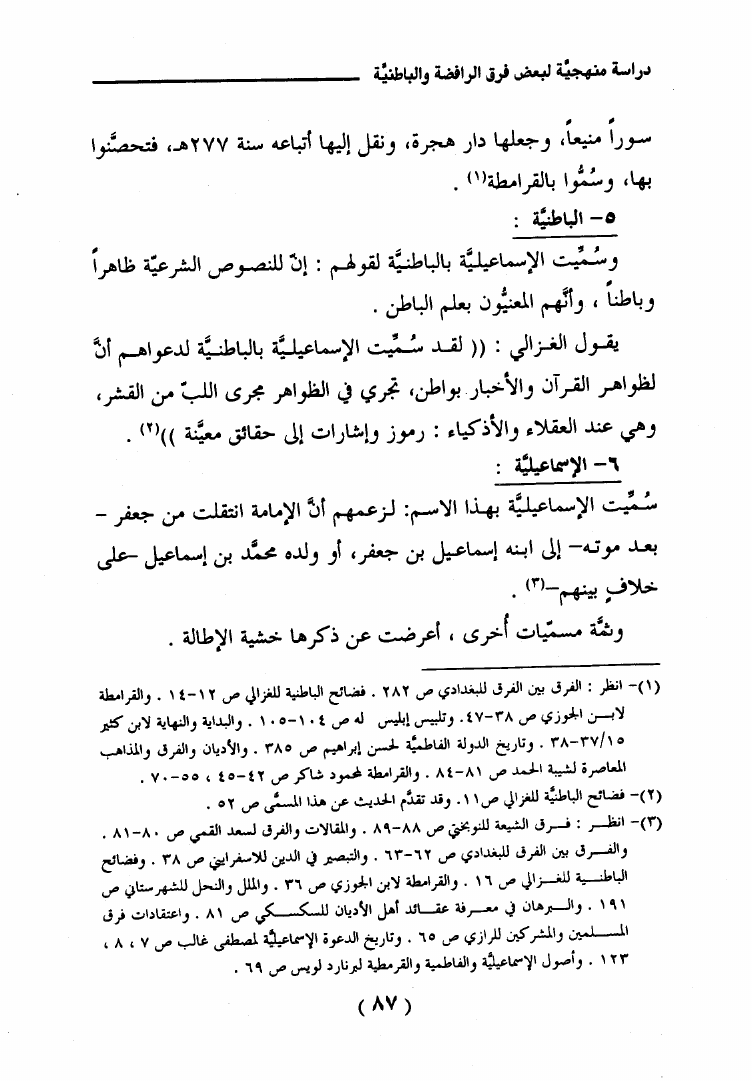 دراسة منهجيَّة لبعض فرق الرافضة والباطنيَّة
سوراً منيعاً، وجعلها دار هجرة، ونقل إليها أتباعه سنة ٢٧٧هـ، فتحصَّنوا
بها، وسُمُّوا بالقرامطة(١) .
٥- الباطنيَّة :
وسُمِّيت الإسماعيليَّة بالباطنيَّة لقولهم : إنّ للنصوص الشرعيّة ظاهراً
وباطناً ، وأنَّهم المعنيُّون بعلم الباطن .
يقول الغزالي : (( لقد سُمِّيت الإسماعيليَّة بالباطنيَّة لدعواهم أنَّ
لظواهر القرآن والأخبار بواطن، تجري في الظواهر مجرى اللبّ من القشر،
وهي عند العقلاء والأذكياء : رموز وإشارات إلى حقائق معيَّنة ))(٢) .
٦- الإسماعيليَّة :
سُمِّيت الإسماعيليَّة بهذا الاسم: لزعمهم أنَّ الإمامة انتقلت من جعفر –
بعد موته– إلى ابنه إسماعيل بن جعفر، أو ولده محمَّد بن إسماعيل –على
خلافٍ بينهم–(٣) .
وثمَّة مسمّيات أُخرى ، أعرضت عن ذكرها خشية الإطالة .
(١)- انظر : الفرق بين الفرق للبغدادي ص ٢٨٢ . فضائح الباطنية للغزالي ص ١٢-١٤ . والقرامطة
لابن الجوزي ص ٣٨-٤٧. وتلبيس إبليس له ص ١٠٤-١٠٥ . والبداية والنهاية لابن كثير
٣٧/١٥-٣٨ . وتاريخ الدولة الفاطميَّة لحسن إبراهيم ص ٣٨٥ . والأديان والفرق والمذاهب
المعاصرة لشيبة الحمد ص ٨١-٨٤ . والقرامطة لمحمود شاكر ص ٤٢-٤٥ ، ٥٥-٧٠ .
(٢)- فضائح الباطنيَّة للغزالي ص١١. وقد تقدَّم الحديث عن هذا المسمَّى ص ٥٢ .
(٣)- انظر : فرق الشيعة للنوبختي ص ٨٨-٨٩ . والمقالات والفرق لسعد القمي ص ٨٠-٨١ .
والفرق بين الفرق للبغدادي ص ٦٢-٦٣ . والتبصير في الدين للاسفراييني ص ٣٨ . وفضائح
الباطنية للغزالي ص ١٦ . والقرامطة لابن الجوزي ص ٣٦ . والملل والنحل للشهرستاني ص
١٩١ . والبرهان في معرفة عقائد أهل الأديان للسكسكي ص ٨١ . واعتقادات فرق
المسلمين والمشركين للرازي ص ٦٥ . وتاريخ الدعوة الإسماعيليَّة لمصطفى غالب ص ٧ ، ٨ ،
١٢٣ . وأصول الإسماعيليَّة والفاطمية والقرمطية لبرنارد لويس ص ٦٩ .
( ٨٧ )